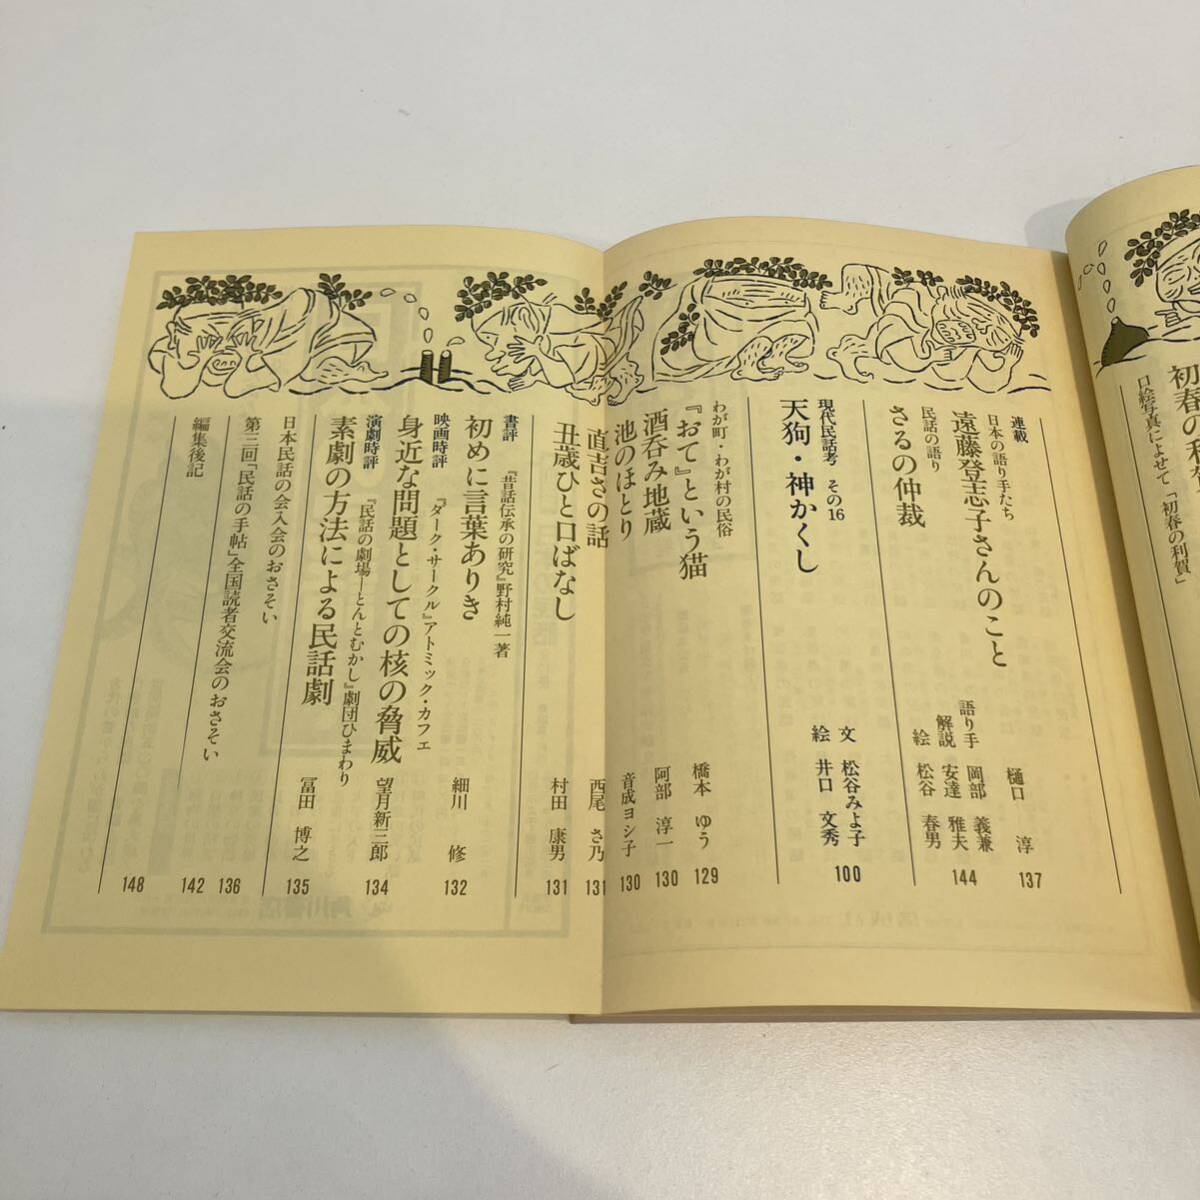 初春の利賀
口絵写真によせて「初春の利賀」
連載
日本の語り手たち
遠藤登志子さんのこと
樋口 淳
137
民話の語り
さるの仲裁
語り手 岡部 義兼
解説 安達 雅夫
絵 松谷 春男
144
現代民話考 その16
天狗・神かくし
文 松谷みよ子
絵 井口 文秀
100
わが町・わが村の民俗
『おて』という猫
橋本 ゆう
129
酒呑み地蔵
阿部 淳一
130
池のほとり
音成ヨシ子
130
直吉さの話
西尾 さ乃
131
丑歳ひと口ばなし
村田 康男
131
書評
『昔話伝承の研究』野村純一著
初めに言葉ありき
細川 修
132
映画時評
『ダーク・サークル』アトミック・カフェ
身近な問題としての核の脅威
望月新三郎
134
演劇時評
『民話の劇場―とんとむかし』劇団ひまわり
素劇の方法による民話劇
冨田 博之
135
日本民話の会入会のおさそい
136
第三回「民話の手帖」全国読者交流会のおさそい
142
編集後記
148